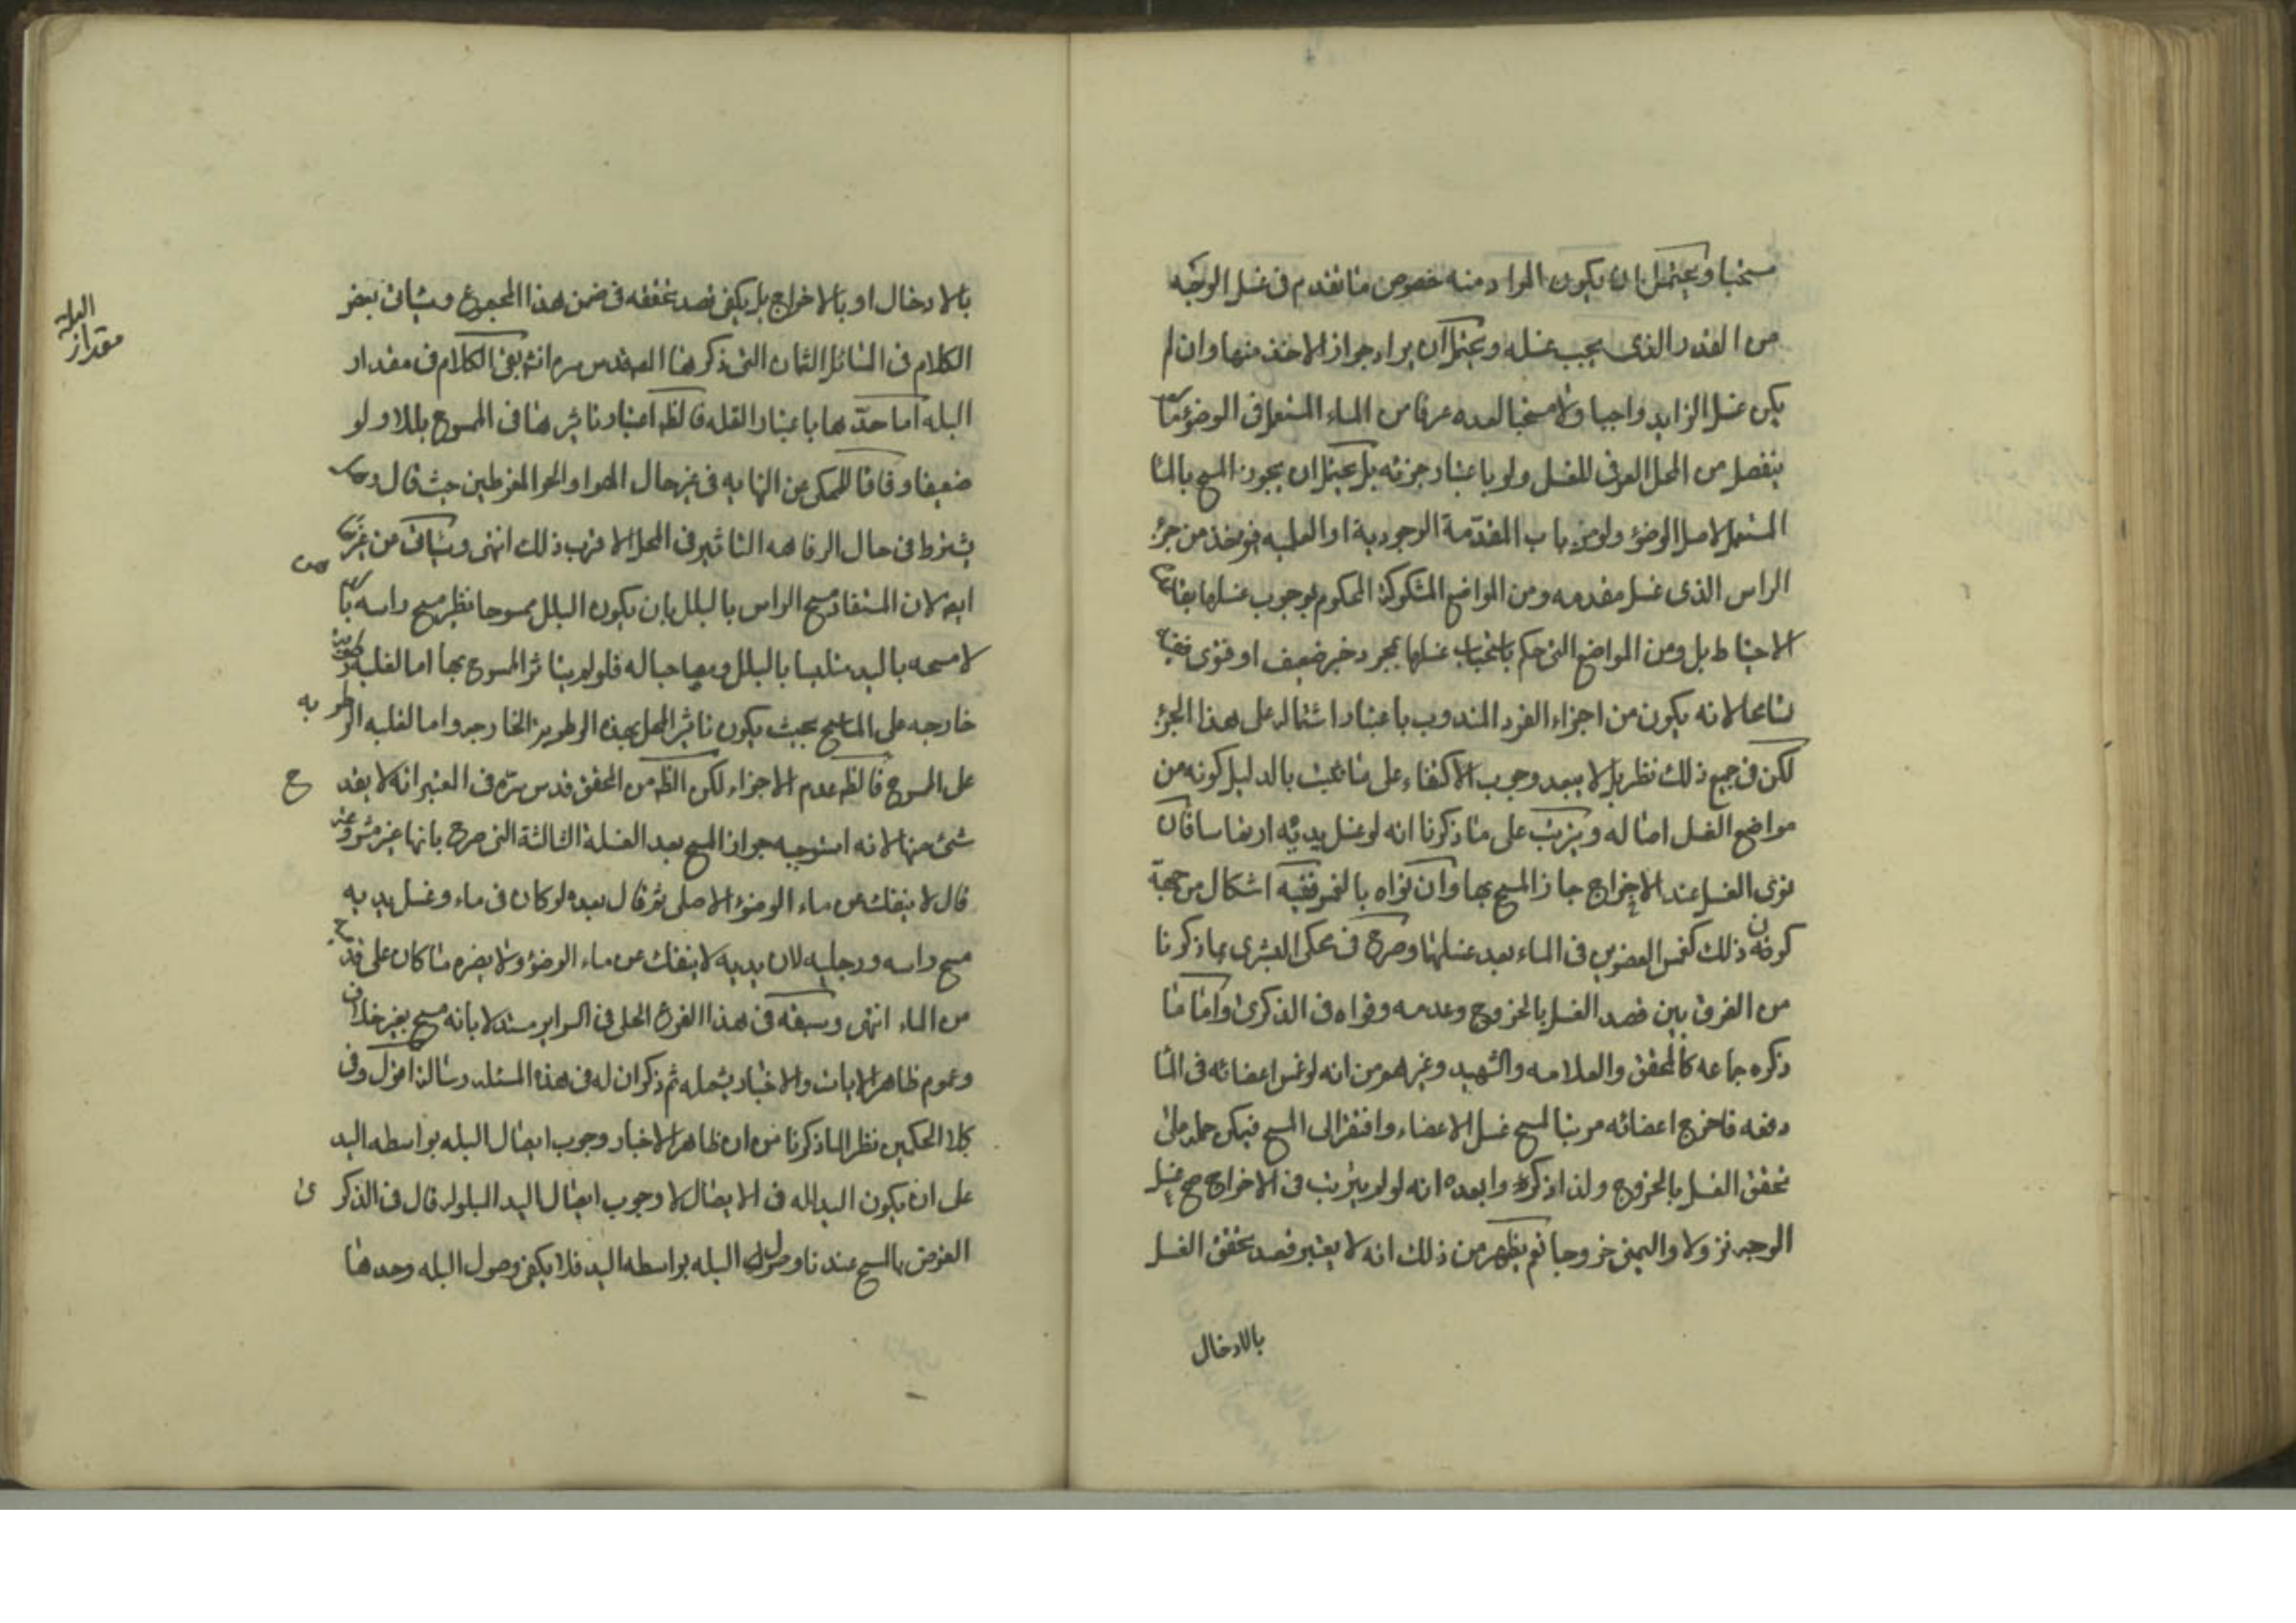 مستحبا ويحتمل ان يكون المراد منه خصوص ما تقدم فى غسل الوجه
من القدر الذى يجب غسله ويحتمل ان يراد جواز الاخذ منها وان لم
يكن غسل الزايد واجبا ولا مستحبا لعده عرفا من الماء المستعمل فى الوضوء ما لم
ينفصل من المحل العرفى للغسل ولو باعتبار جزئه بل يحتمل ان يجوز المسح بالماء
المستعمل لاصل الوضوء ولو من باب المقدمة الوجودية او العلميه فيؤخذ من جزء
الراس الذى غسل مقدمه ومن المواضع المشكوكة المحكوم بوجوب غسلها بقاعدة
الاحتياط بل ومن المواضع التى حكم باستحباب غسلها بمجرد خبر ضعيف او فتوى فقيه
تسامحا لانه يكون من اجزاء الفرد المندوب باعتبار اشتماله على هذا الجزء
لكن فى جميع ذلك نظر بل لا يبعد وجوب الاكتفاء على ما ثبت بالدليل كونه من
مواضع الغسل اصاله ويترتب على ما ذكرنا انه لو غسل يديه ارتماسا فان
نوى الغسل عند الاخراج جاز المسح بها وان نواه بالغمر ففيه اشكال من جهة
كون ذلك كغمس العضوين فى الماء بعد غسلهما وصرح فى محكى البشرى بما ذكرنا
من الفرق بين قصد الغسل بالخروج وعدمه وقواه فى الذكرى واما ما
ذكره جماعه كالمحقق والعلامه والشهيد وغيرهم من انه لو غمس اعضائه فى الماء
دفعه فاخرج اعضائه مرتبا لمسح غسل الاعضاء وافتقر الى المسح فيمكن حمله على
تحقق الغسل بالخروج ولذا ذكروا بعده انه لو لم يترتب فى الاخراج صح غسل
الوجه نزولا واليمنى خروجا نعم يظهر من ذلك انه لا يعتبر قصد تحقق الغسل
بالادخال
بالادخال او بالاخراج بل يكفى قصد تحققه فى ضمن هذا المجموع وسيأتى بعض
الكلام فى المسائل الثمان التى ذكرها المص قدس سره انشه بقى الكلام فى مقدار
البله اما حدها باعتبار القله فالظه اعتبار تاثيرها فى الممسوح بللا ولو
ضعيفا وفاقا للمحكى عن النهايه فى غير حال الهوا والحر المفرطين حيث قال
يشترط فى حال الرفاهه التاثير فى المحل الاقرب ذلك انتهى وسيأتى من
ايم لان المستفاد مسح الراس بالبلل بان يكون البلل ممسوحا نظير مسح راسه
لا مسحه باليد متلبسا بالبلل ومصاحبا له فلو لم يتاثر الممسوح بها اما لغلبه رطوبة
خارجه على الماسح بحيث يكون تاثير المحل بهذه الرطوبة الخارجه واما لغلبه الرطوبه
على الممسوح فالظه عدم الاجزاء لكن الظه من المحقق قدس سره فى المعتبر انه لا يقدح
شئ منها لانه استوجه جواز المسح بعد الغسلة الثالثة التى صرح بانها غير مشروعه
قال لا ينفك من ماء الوضوء الاصلى ثم قال بعده لو كان فى ماء وغسل يديه
مسح راسه ورجليه لان يديه لا ينفك من ماء الوضوء ولا يضره ما كان على قدميه
من الماء انتهى وسبقه فى هذا الفرع الحلى فى السراير مستدلا بانه مسح بغير خلاف
وعموم ظاهر الايات والاخبار يشمله ثم ذكر ان له فى هذه المسئلة رسالة اقول وفى
كلا الحكمين نظر لما ذكرنا من ان ظاهر الاخبار وجوب ايصال البله بواسطه اليد
على ان يكون اليد اله فى الايصال لا وجوب ايصال اليد المبلوله قال فى الذكرى
الغرض بالمسح عندنا وصول البله بواسطه اليد فلا يكفى وصول البله وحدها
مقدار
البله